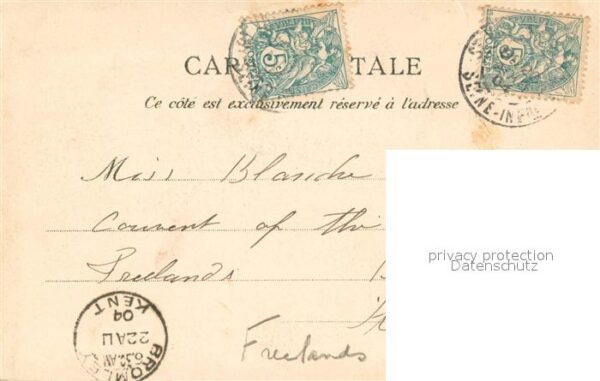 CARTE POSTALE
Ce côté est exclusivement réservé à l'adresse
5
5
SEINE-INF
Miss Blanche
Convent of the
Freelands
Freelands
BROMLEY
6.30 AM
22 AU
04
KENT
privacy protection
Datenschutz